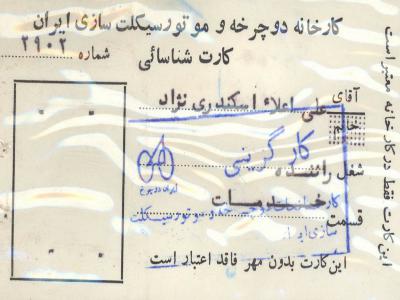 کارخانه دوچرخه و موتورسیکلت سازی ایران
کارت شناسائی
شماره ۲۹۰۲
آقای علی اعلاء اسکندری نژاد
خانم
کارگزینی
شغل راننده
قسمت خدمات
ایران دوچرخ
کارخانجات دوچرخه و موتورسیکلت
سازی ایران
این کارت بدون مهر فاقد اعتبار است
این کارت فقط در کارخانه معتبر است